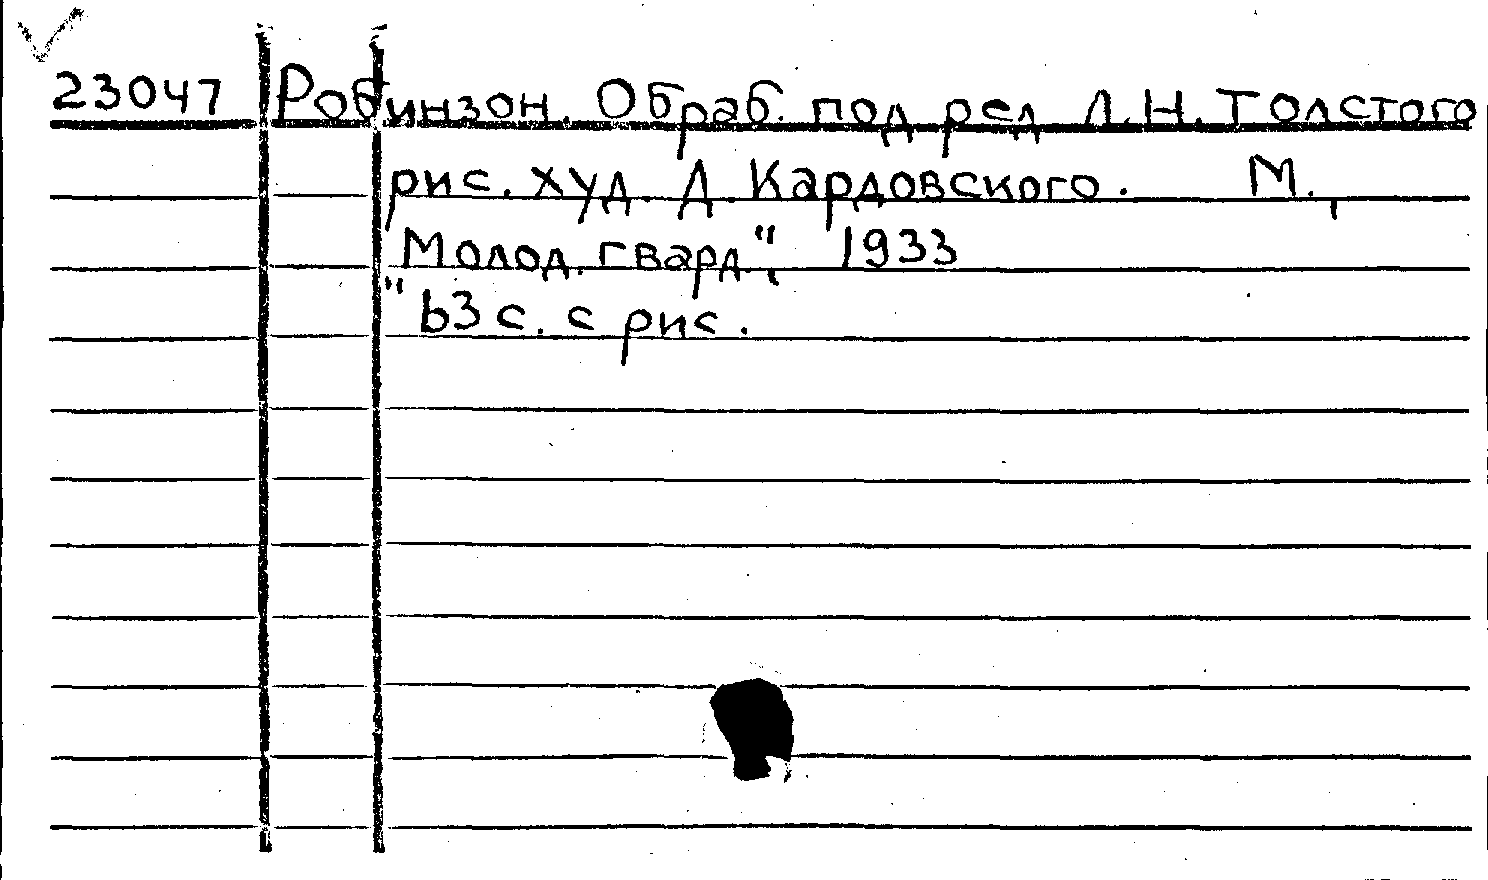 23047 Робинзон. Обраб. под ред Л.Н. Толстого
рис. худ. Д. Кардовского. М.,
"Молод. гвард.", 1933
63 с. с рис.